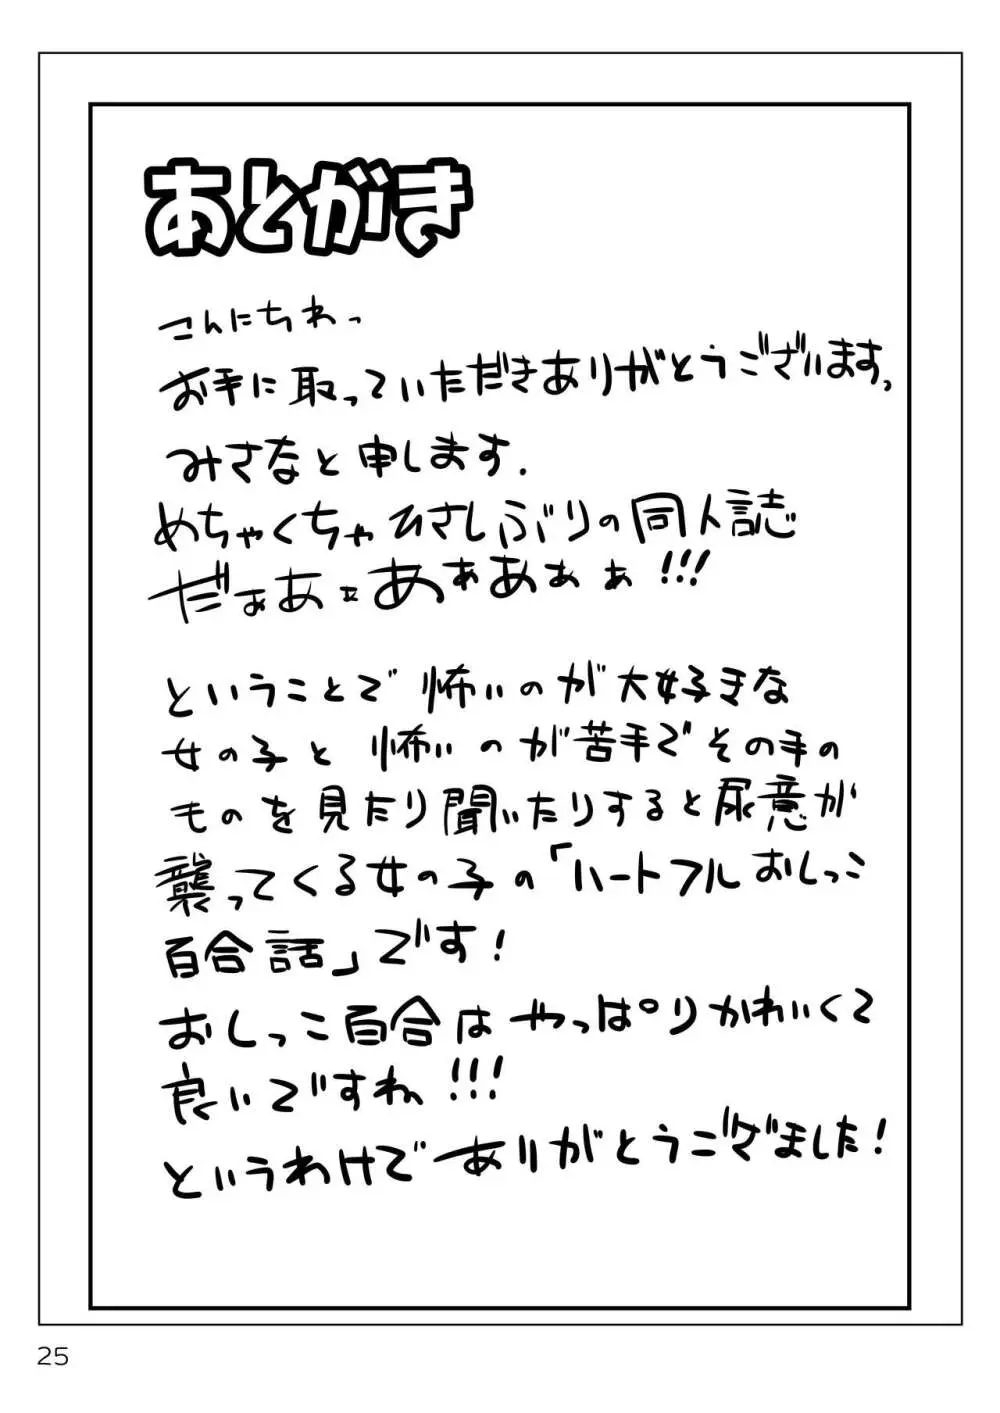 あとがき
こんにちわっ
お手に取っていただきありがとうございます、
みさなと申します.
めちゃくちゃひさしぶりの同人誌
だぁあぁあぁあぁぁ!!!
ということで怖いのが大好きな
女の子と怖いのが苦手でその手の
ものを見たり聞いたりすると尿意が
襲ってくる女の子の「ハートフルおしっこ
百合話」です!
おしっこ百合はやっぱりかわいくて
良いですね!!!
というわけでありがとうございました!
25